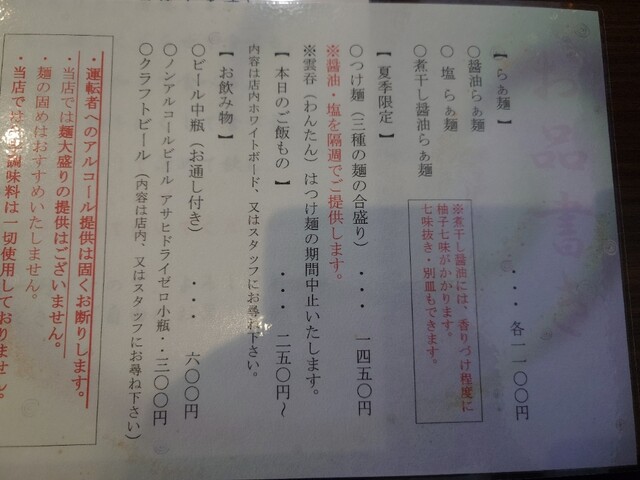 お品書き
【 らぁ麺 】 ・・・ 各一一〇〇円
〇醤油らぁ麺
〇 塩 らぁ麺
〇煮干し醤油らぁ麺
※煮干し醤油には、香りづけ程度に
柚子七味がかかります。
七味抜き・別皿もできます。
【 夏季限定 】
〇つけ麺（三種の麺の合盛り） ・・・ 一四五〇円
※醤油・塩を隔週でご提供します。
※雲呑（わんたん）はつけ麺の期間中止いたします。
【 本日のご飯もの 】 ・・・ 二五〇円～
内容は店内ホワイトボード、又はスタッフにお尋ね下さい。
【 お飲み物 】
〇ビール中瓶（お通し付き） ・・・ 六〇〇円
〇ノンアルコールビール アサヒドライゼロ小瓶・・三〇〇円
〇クラフトビール（内容は店内、又はスタッフにお尋ね下さい）
・運転者へのアルコール提供は固くお断りします。
・当店では麺大盛りの提供はございません。
・麺の固めはおすすめいたしません。
・当店では 調味料は一切使用しておりません。